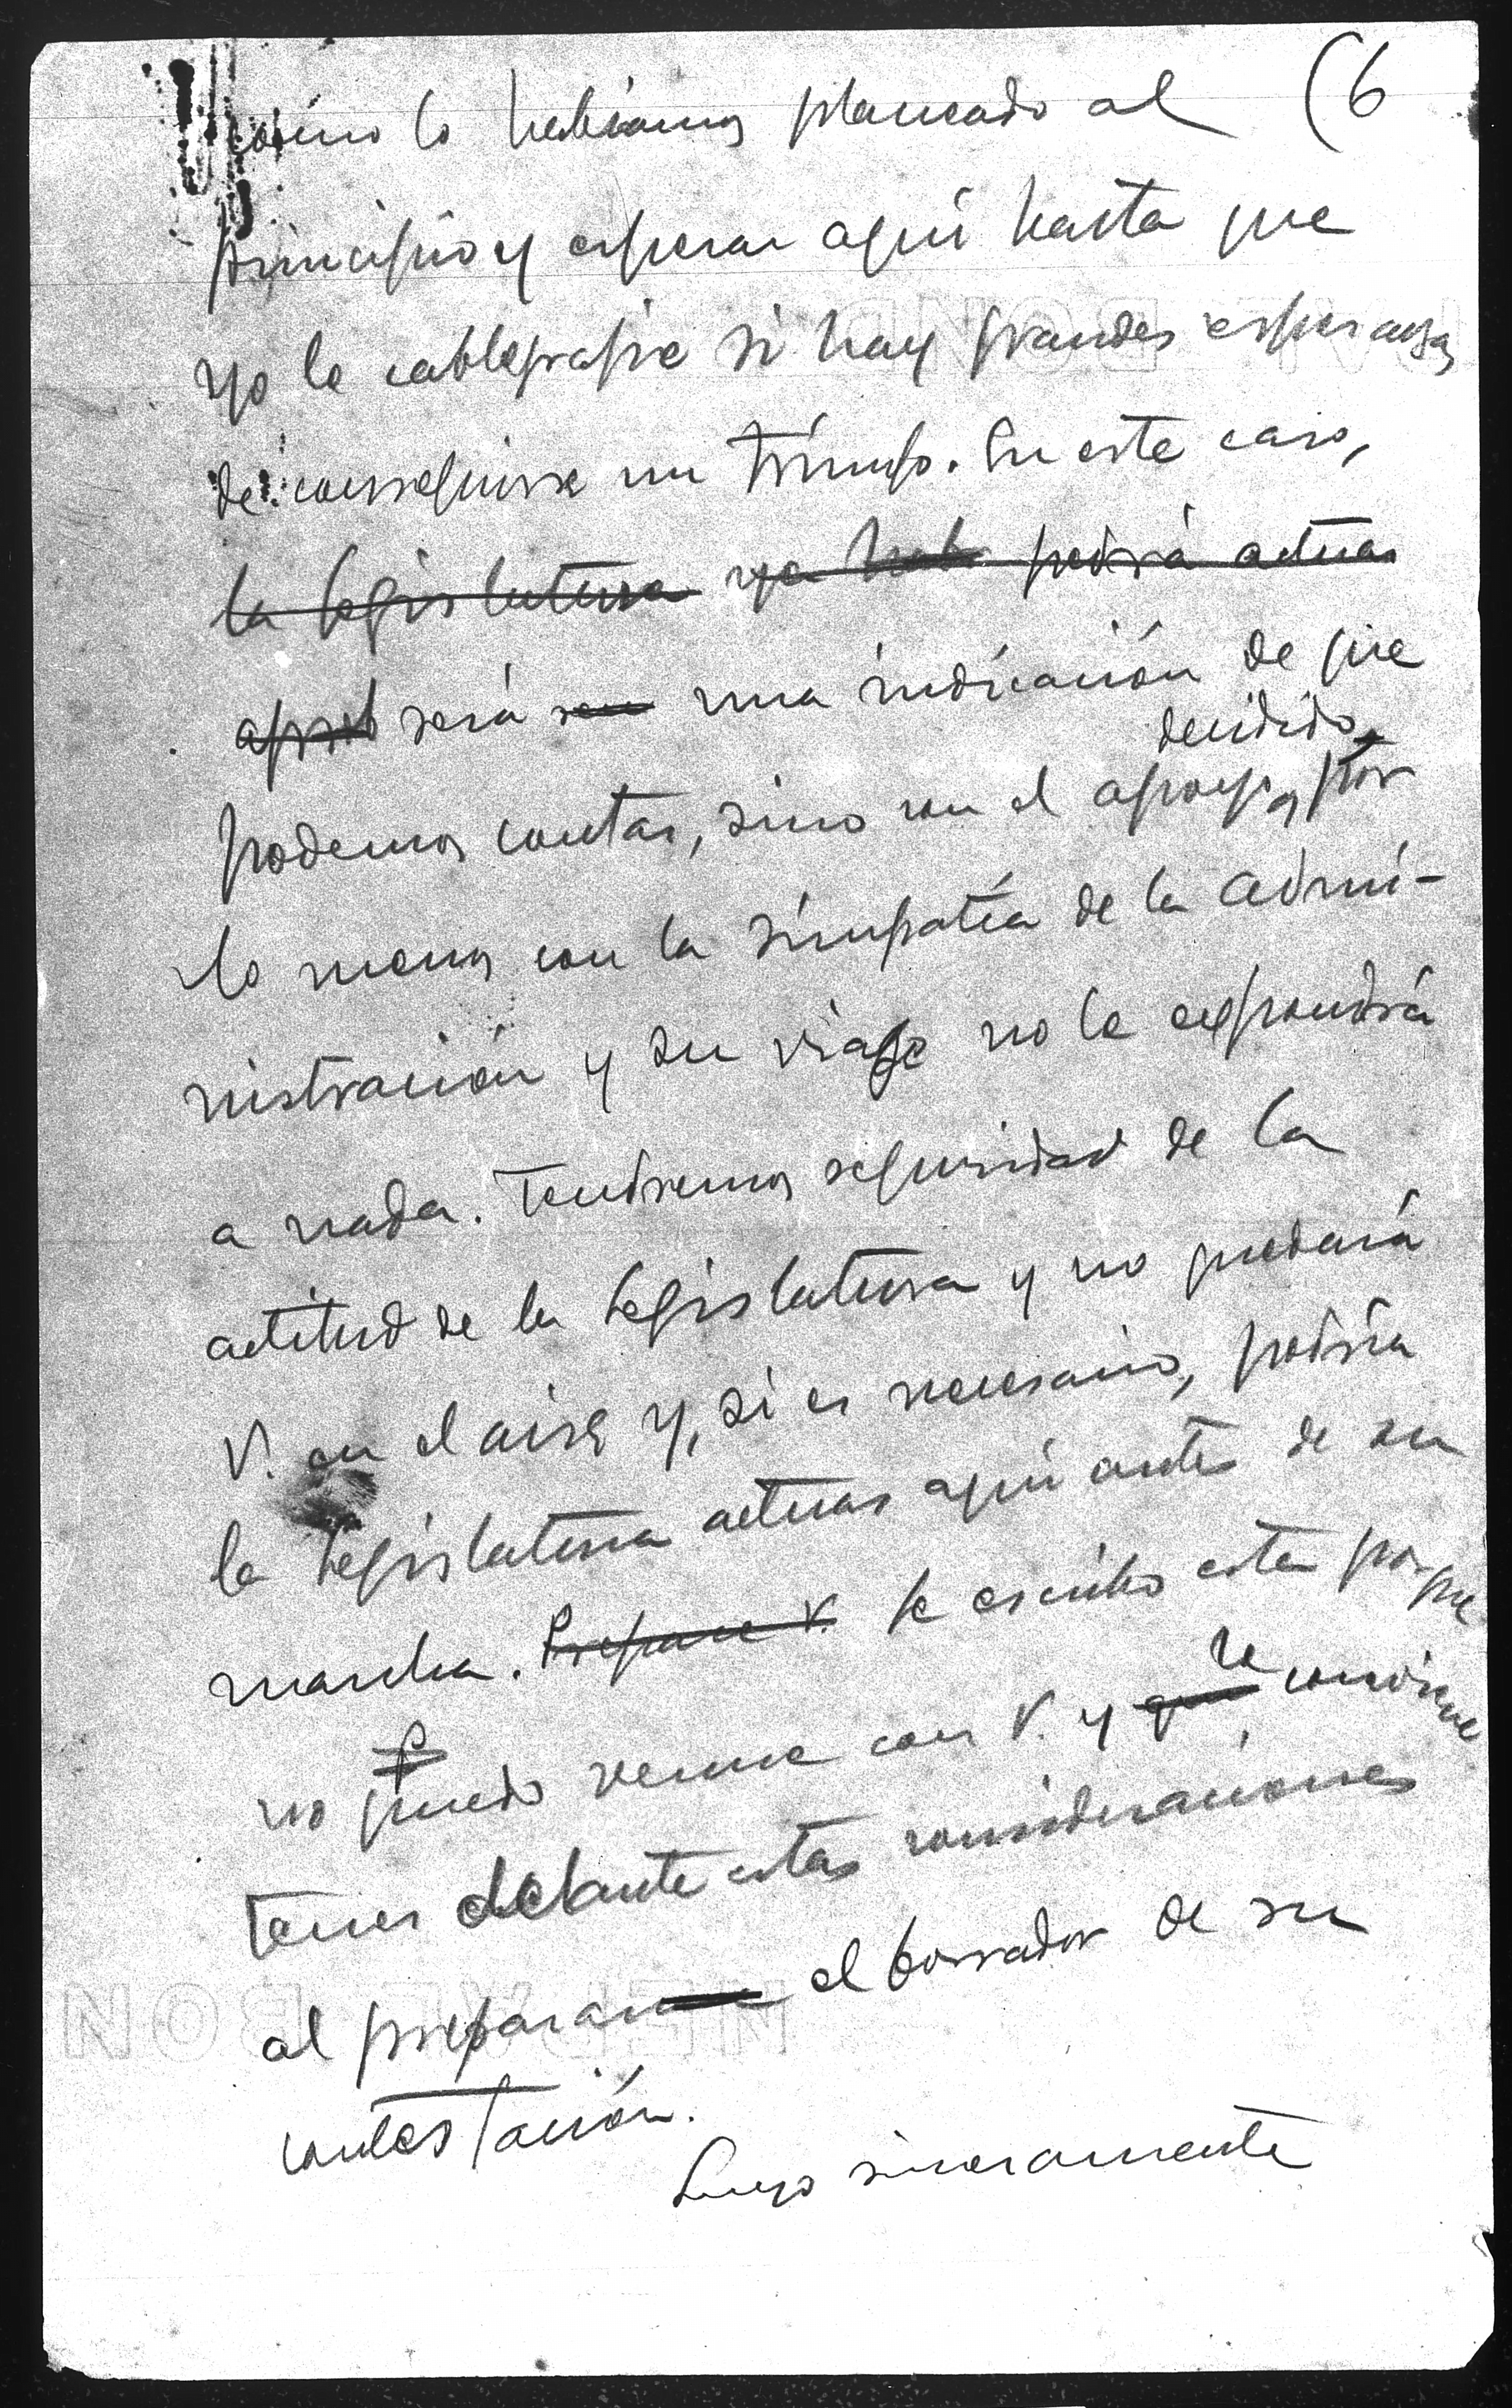 (6
como lo habíamos planeado al
principio y esperar aquí hasta que
yo le cablegrafíe si hay grandes esperanzas
de conseguirse un triunfo. En este caso,
la legislatura ya podrá actuar
será una indicación de que
decidido,
podemos contar, sino con el apoyo, por
lo menos con la simpatía de la admi-
nistración y su viaje no le expondrá
a nada. Tendremos seguridad de la
actitud de la Legislatura y no quedará
V. en el aire y, si es necesario, podría
la Legislatura actuar aquí antes de su
marcha. Prepare V. Le escribo esta porque
le
no puedo verme con V. y que conviene
tener delante estas consideraciones
al preparar el borrador de su
contestación.
Suyo sinceramente
BOND
BON